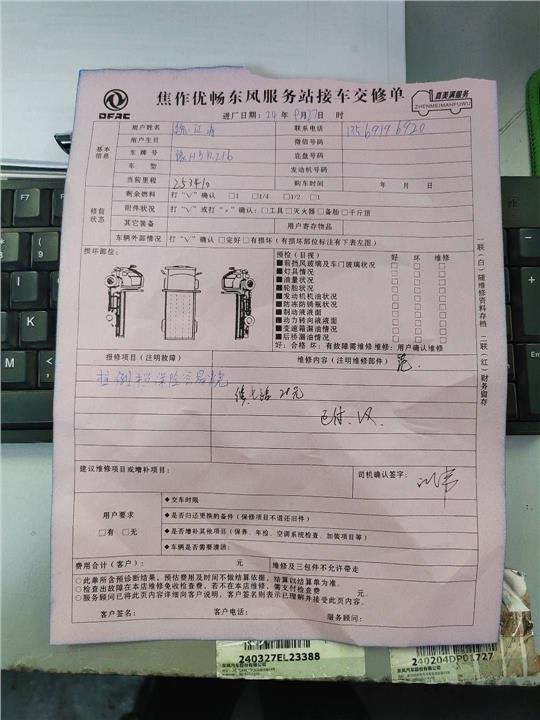 DFAC
焦作优畅东风服务站接车交修单
真美满服务
ZHENMEIMANFUWU
进厂日期：24 年 9月27日 时
基本信息
用户姓名
联系电话 13569196920
用户生日
微信号码
车牌号
底盘号码
车型
发动机号码
当前里程 253410
购车时间 年 月 日
修前状态
剩余燃料 打“√”确认 □1 □1/4 □1/2 □1
附件状况 打“√”或打“×”确认：□工具□灭火器□备胎□千斤顶
其它装备
用户寄存物品
车辆外部情况 打“√”确认□完好□有损坏(有损坏部位标注有下表左图)
损坏部位：
预检（目视） 好 坏 维修
■前挡风玻璃及车门玻璃状况 □ □ □
■灯具情况 □ □ □
■油量状况 □ □ □
■轮胎状况 □ □ □
■发动机机油状况 □ □ □
■防冻防锈瓶状况 □ □ □
■制动液液面 □ □ □
■动力转向液液面 □ □ □
■变速箱漏油情况 □ □ □
■后桥漏油情况 □ □ □
好：合格 坏：有故障需维修 维修：用户确认维修
报修项目（注明故障）
维修内容（注明维修部件）
已付.
建议维修项目或增补项目：
司机确认签字：
用户要求
□有 □无
◆交车时限
◆是否归还更换的备件（保修项目不退还旧件）
◆是否增补其他项目（保养、年检、空调系统检查、加装项目等）
◆车辆是否需要清洁：
费用合计（客户）： 元
维修及三包件不允许带走
○此单所含预诊断结果，预估费用及时间不做结算依据，结算以结算单为准.
○检查出故障在本店维修免收检查费，若不在本店维修，需支付检查费 元.
○服务顾问已将此页内容详细向客户说明，客户签名则表示已理解并接受此页内容.
客户签名：
客户电话：
服务顾问：
一联（白）随维修资料存档 二联（红）财务留存
240327EL23388
240204DP01727